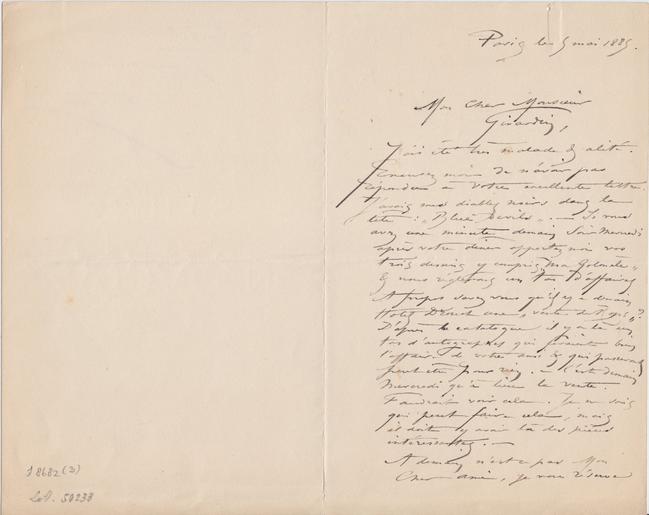 Paris le 5 mai 1885.
Mon Cher Monsieur
Girardin,
J'ai été très malade & alité.
Excusez moi de n'avoir pas
répondu à votre excellente lettre.
J'avais mes diables noirs dans la
tête : „ Blue Devils „ . — Si vous
avez une minute demain soir Mercredi
après votre dîner apportez moi vos
trois dessins y compris „ Ma „
& nous réglerons un tas d'affaires
A propos savez vous qu'il y a demain
Hotel Drouot une vente de ?
D'après le catalogue il y a là un
tas d'autographes qui feraient bien
l'affaire de votre ami & qui passeront
peut être pour rien. — C'est demain
Mercredi qu'a lieu la vente.
Faudrait voir cela. Je ne sais
qui peut faire cela, mais
il doit y avoir là des pièces
intéressantes. —
A demain n'est ce pas Mon
Cher ami, je vous réserve
J 8682 (3)
50238